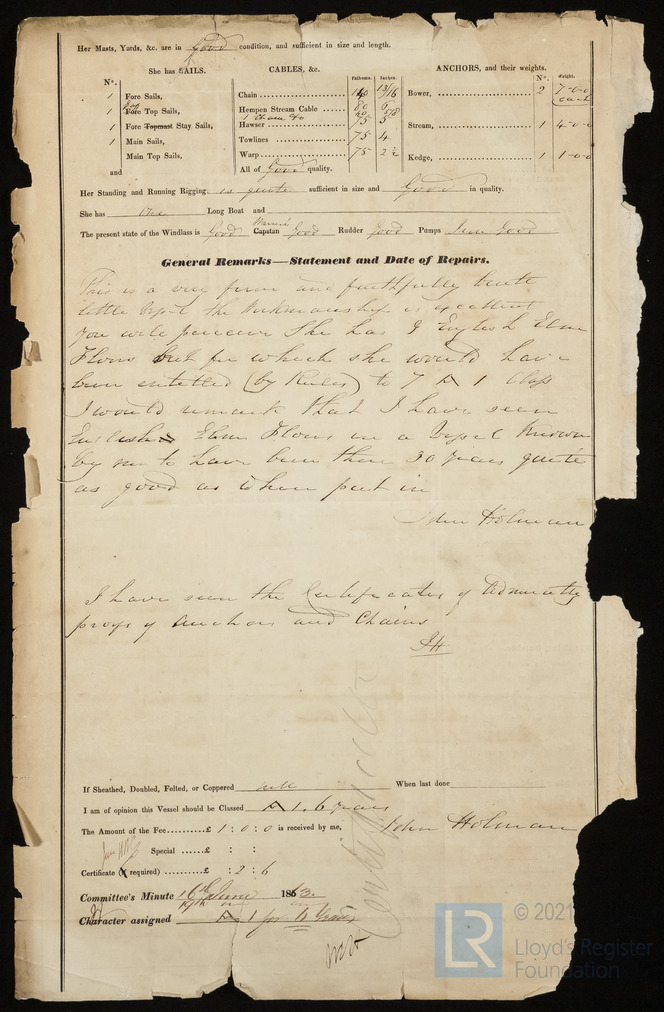 Her Masts, Yards, &c. are in Good condition, and sufficient in size and length.
She has SAILS. CABLES, &c. Fathoms. Inches. ANCHORS, and their weights.
Nº. Nº. Weight.
1 Fore Sails, Chain 13/16 Bower, 2 7-0-0 each
Fore Top Sails, Hempen Stream Cable 80 6
1 Chain do 5/8
1 Fore Topmast Stay Sails, Hawser 75 5 Stream, 1 4-0-0
1 Main Sails, Towlines 75 4
Main Top Sails, Warp 75 2½ Kedge, 1 1-0-0
and All of Good quality.
Her Standing and Running Rigging is quite sufficient in size and Good in quality.
She has One Long Boat and
The present state of the Windlass is Good Capstan Good Rudder Good Pumps Good
General Remarks—Statement and Date of Repairs.
This is a very firm and faithfully built
little Vessel the Workmanship is excellent
you will perceive She has English Elm
Floors but for which she would have
been entitled (by Rules) to 7 A 1 Class
I would remark that I have seen
English Elm Floors in a Vessel Known
by me to have been there 30 years quite
as good as when put in
John Holman
I have seen the Certificates of Admiralty
proof of Anchors and Chains
JH
Certificate
If Sheathed, Doubled, Felted, or Coppered When last done
I am of opinion this Vessel should be Classed A 1, 6 years
The Amount of the Fee £ 1 : 0 : 0 is received by me, John Holman
Special £ : :
Certificate (if required) : 2 : 6
Committee's Minute 16th June 1863.
Character assigned A 1 for 6 Years
LR © 2021
Lloyd's Register
Foundation